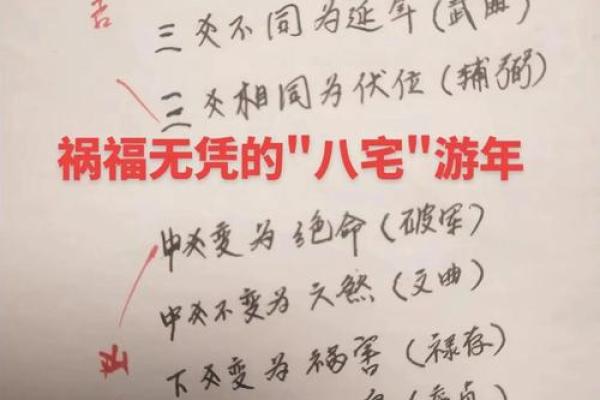 吉
三爻不同为延年(武曲)
三爻相同为伏位(辅弼)
祸福无凭的"八宅"游年
中爻变为绝命(破军)
中爻不变为六煞(文曲)
下爻变为祸害(禄存)